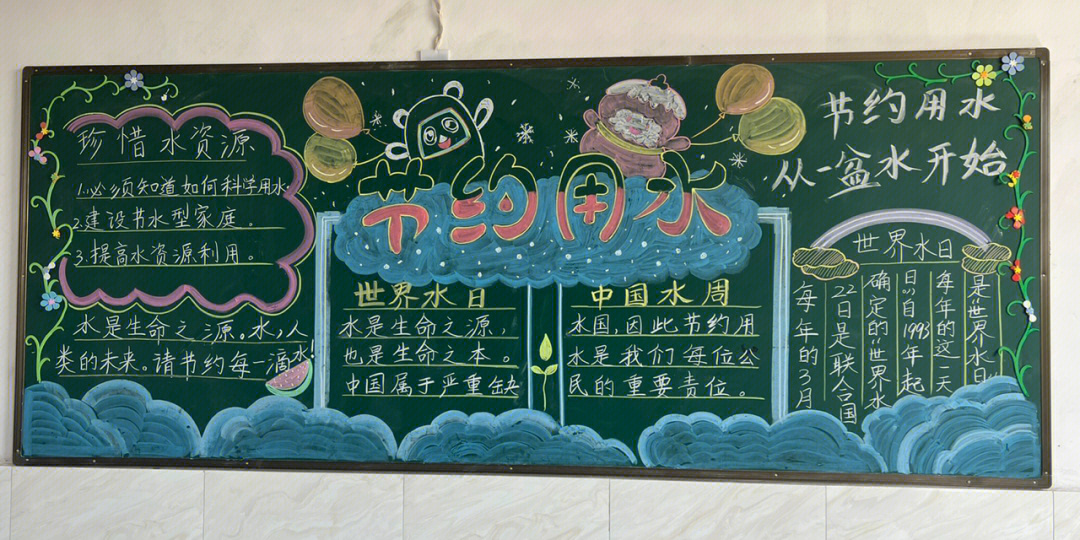 珍惜水资源
1.必须知道如何科学用水.
2.建设节水型家庭。
3.提高水资源利用。
水是生命之源。水，人
类的未来。请节约每一滴水!
节约用水
世界水日
水是生命之源，
也是生命之本。
中国属于严重缺
中国水周
水国，因此节约用
水是我们每位公
民的重要责位。
节约用水
从一盆水开始
世界水日
每年的3月
22日是联合国
确定的“世界水
日”自1993年起
每年的这一天
是“世界水日